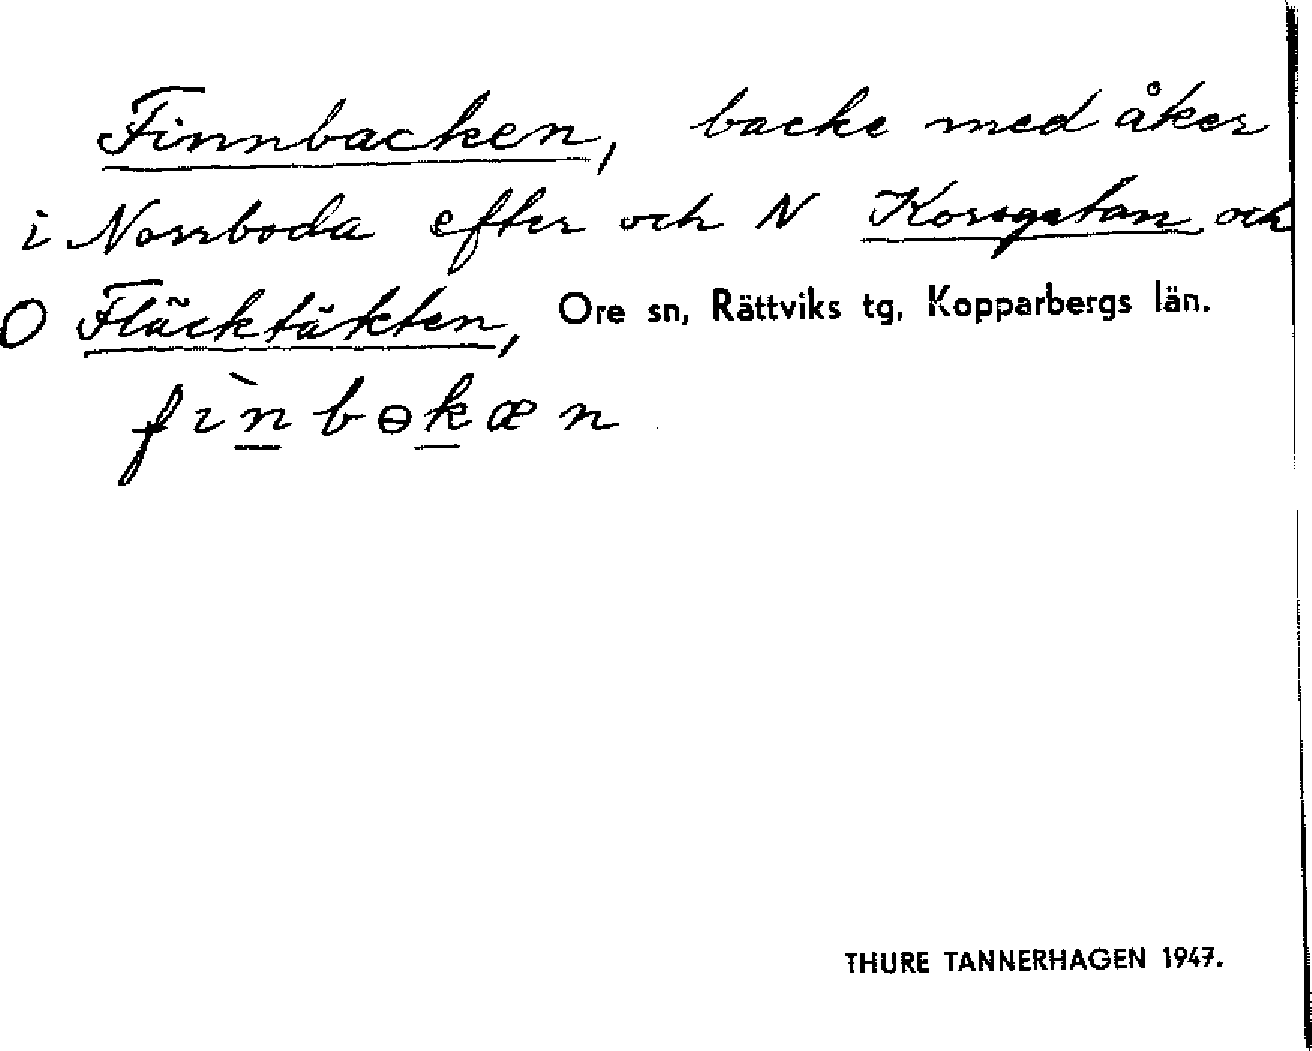 Finnbacken, backe med åker
i Norrboda efter och N Korsgatan och
O Fläcktäkten, Ore sn, Rättviks tg, Kopparbergs län.
fìn̲bɵk̲æn
THURE TANNERHAGEN 1947.